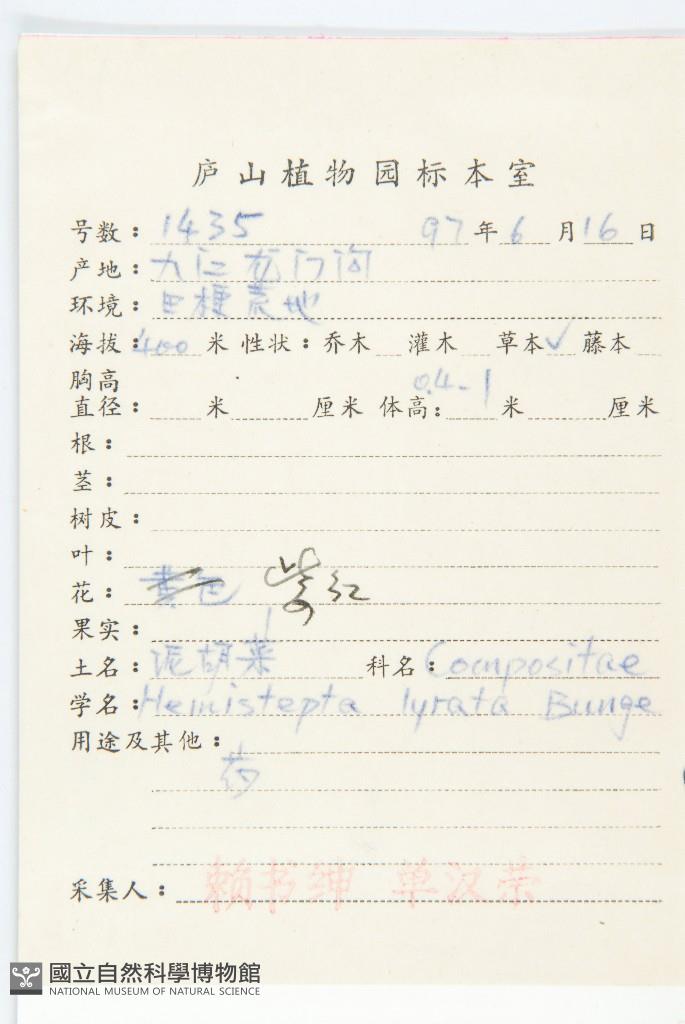 庐山植物园标本室
号数：1435 97年6月16日
产地：九江龙门沟
环境：田梗荒地
海拔：400米 性状：乔木 灌木 草本✓ 藤本
胸高
直径： 米 厘米 体高：0.4-1米 厘米
根：
茎：
树皮：
叶：
花：黄色 紫红
果实：
土名：泥胡菜 科名：Compositae
学名：Hemistepta lyrata Bunge
用途及其他：
药
采集人：赖书绅 单汉荣
國立自然科學博物館
NATIONAL MUSEUM OF NATURAL SCIENCE